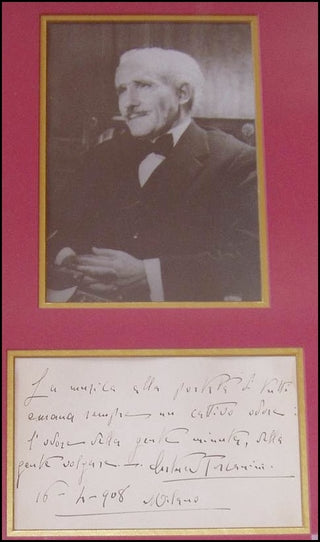 La musica alla portata di tutti
emana sempre un cattivo odore:
l'odore della gente minuta, della
gente volgare —. Arturo Toscanini.
16 - 4 - 908 Milano